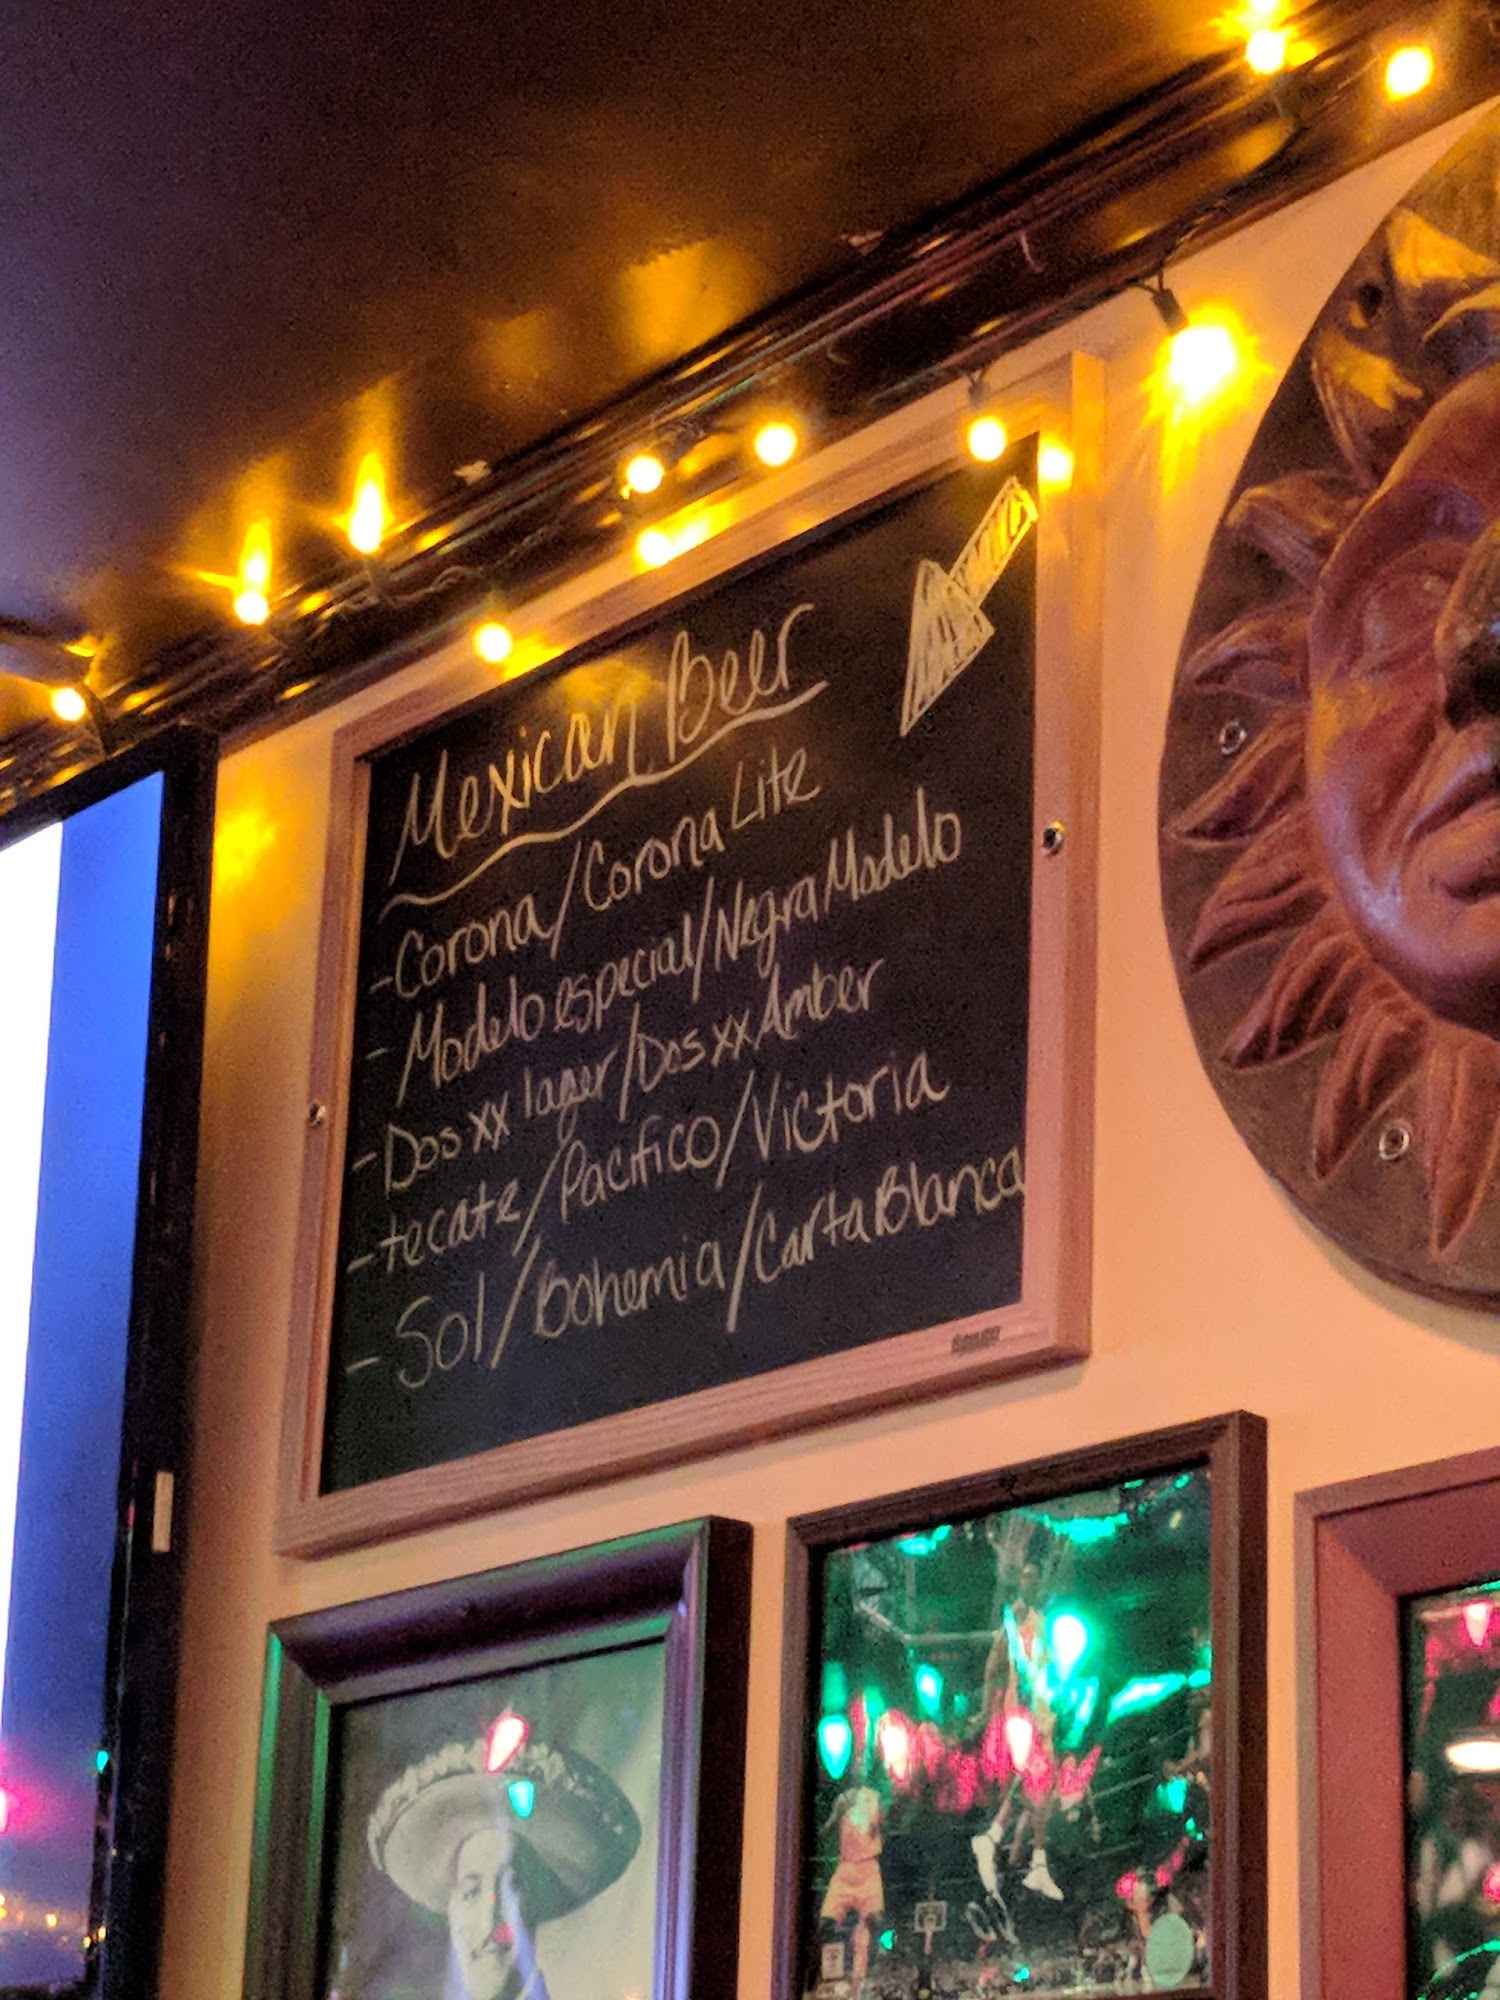 Mexican Beer
- Corona/Corona Lite
- Modelo especial/Negra Modelo
- Dos xx lager/Dos xx Amber
- tecate/Pacifico/Victoria
- Sol/Bohemia/Carta Blanca